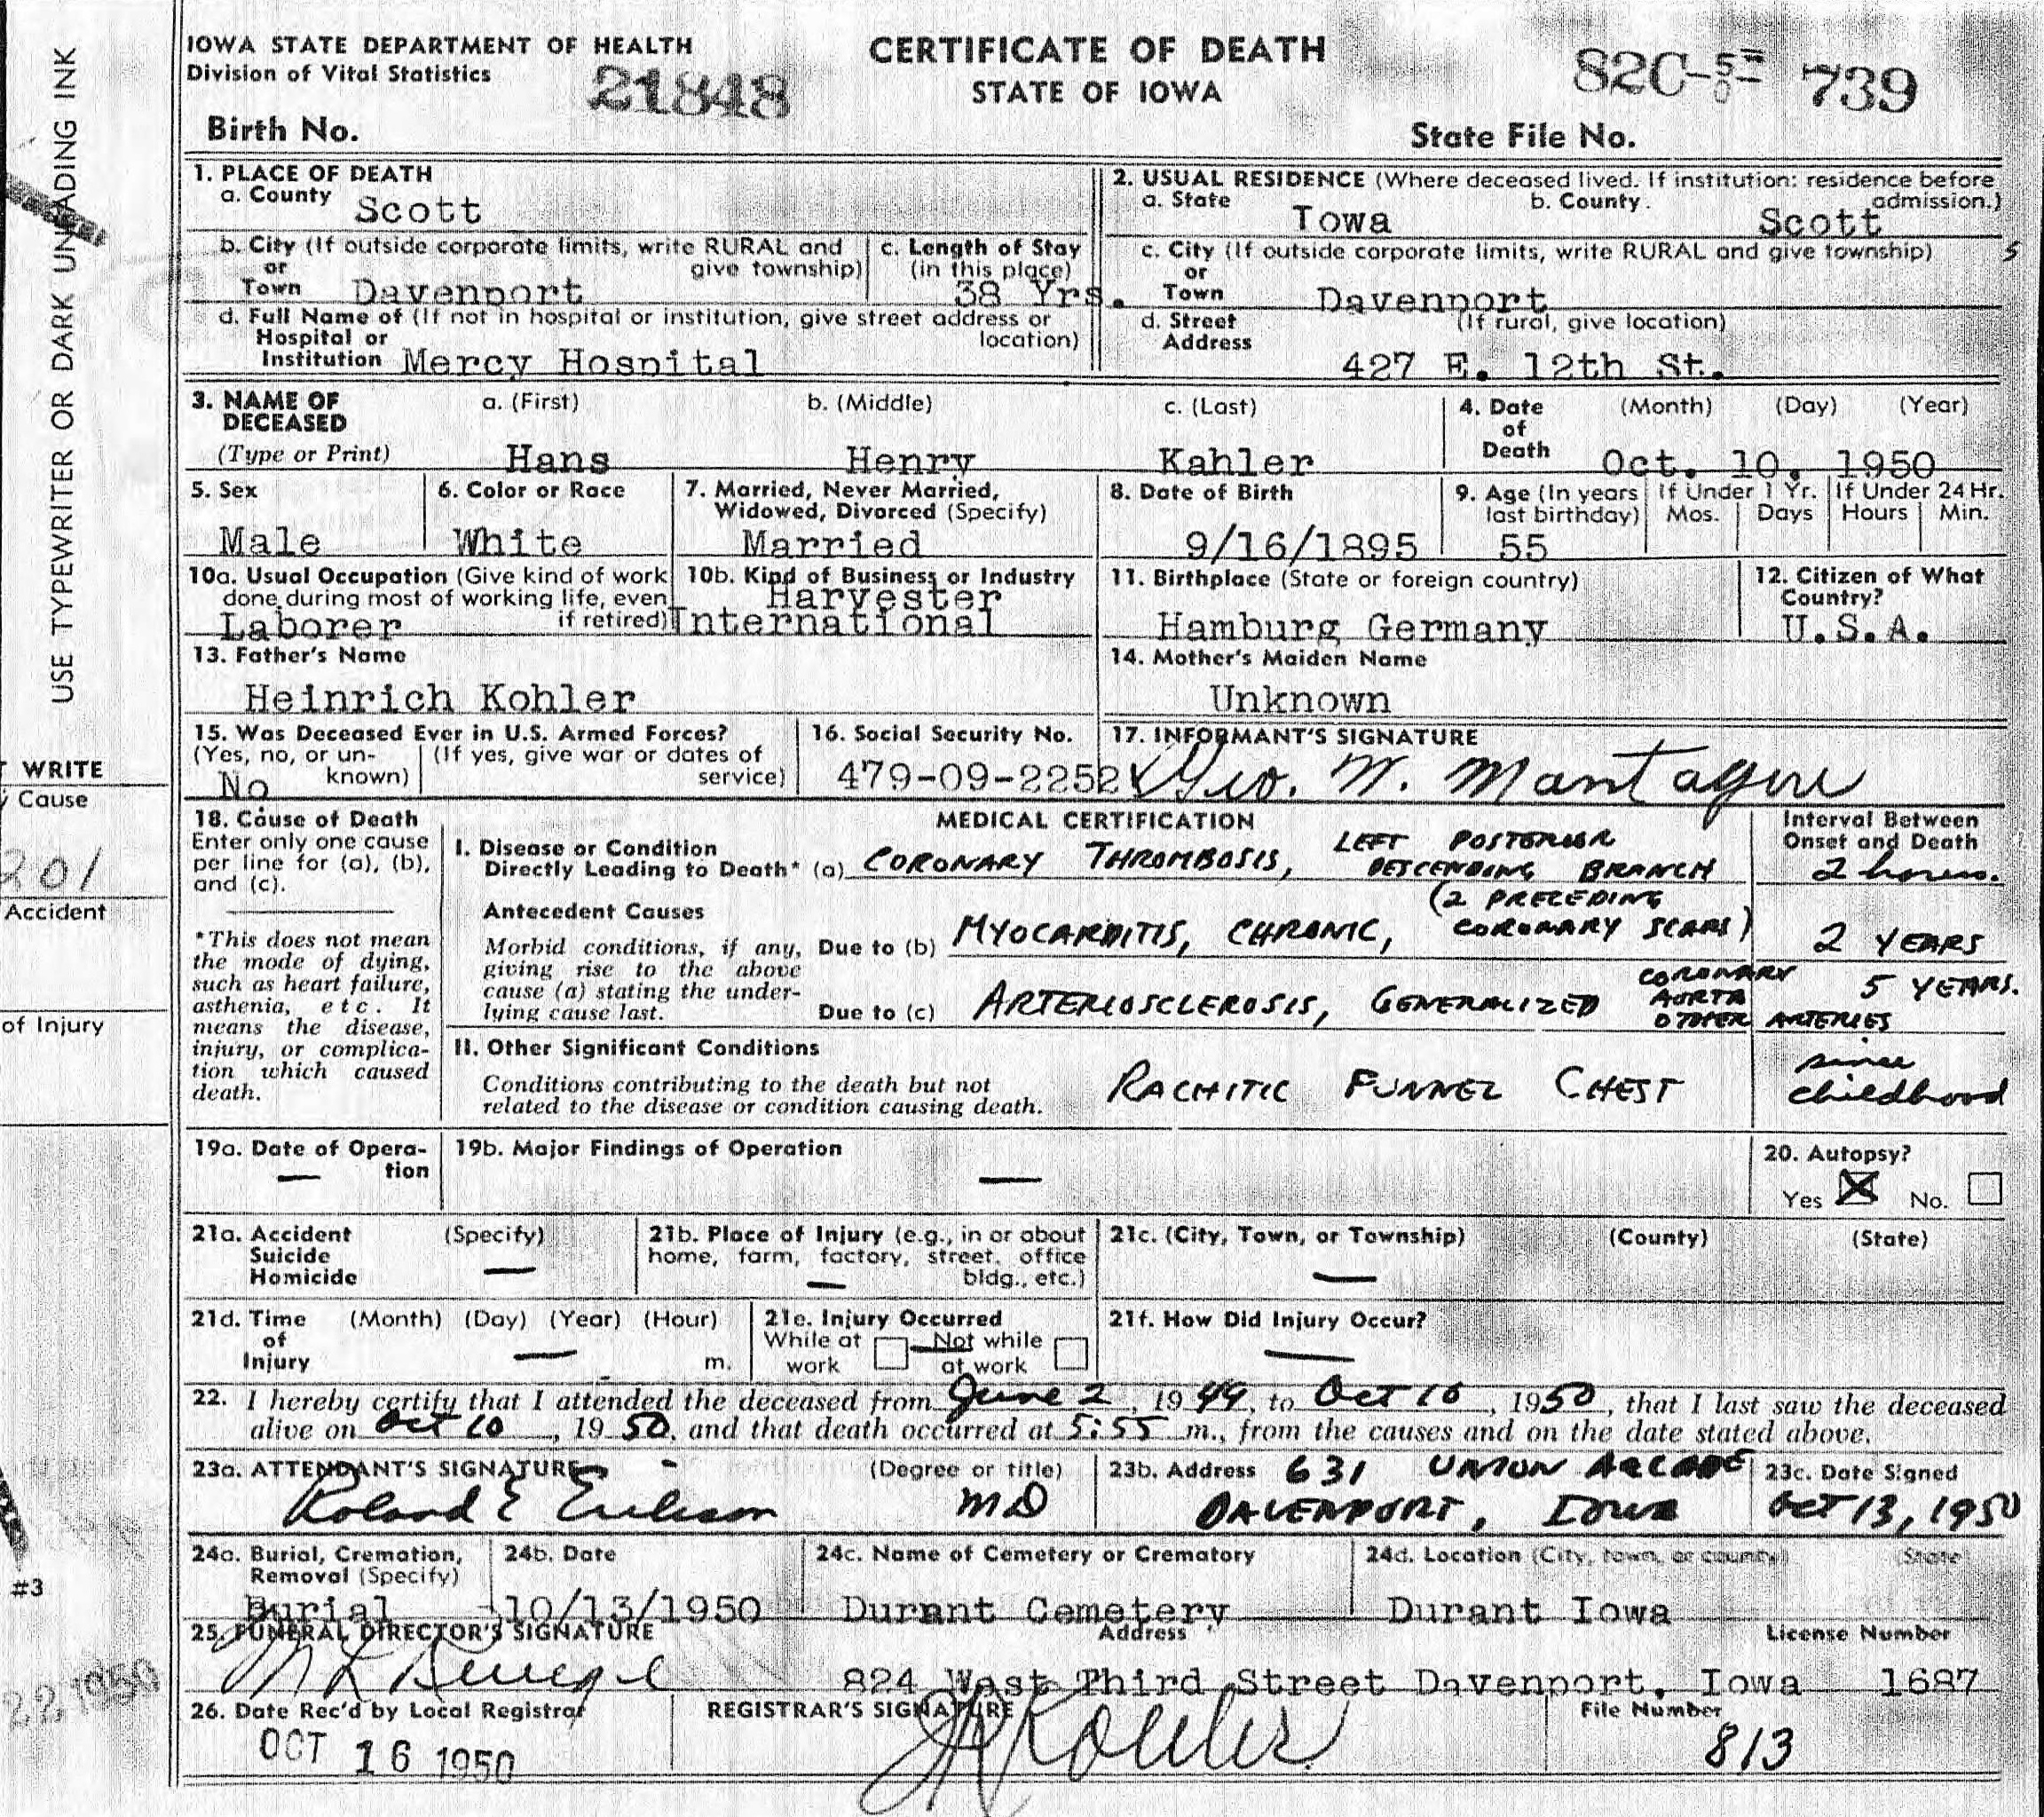 USE TYPEWRITER OR DARK UNFADING INK
WRITE
Cause
201
Accident
of Injury
#3
22, 1950
IOWA STATE DEPARTMENT OF HEALTH
Division of Vital Statistics
21848
CERTIFICATE OF DEATH
STATE OF IOWA
82C-50- 739
Birth No.
State File No.
1. PLACE OF DEATH
a. County Scott
b. City (If outside corporate limits, write RURAL and give township)
or Town Davenport
c. Length of Stay (in this place)
38 Yrs.
d. Full Name of (If not in hospital or institution, give street address or location)
Hospital or
Institution Mercy Hospital
2. USUAL RESIDENCE (Where deceased lived. If institution: residence before admission.)
a. State Iowa b. County. Scott
c. City (If outside corporate limits, write RURAL and give township) 5
or
Town Davenport
d. Street Address (If rural, give location)
427 E. 12th St.
3. NAME OF DECEASED
(Type or Print)
a. (First) b. (Middle) c. (Last)
Hans Henry Kahler
4. Date of Death (Month) (Day) (Year)
Oct. 10, 1950
5. Sex
Male
6. Color or Race
White
7. Married, Never Married, Widowed, Divorced (Specify)
Married
8. Date of Birth
9/16/1895
9. Age (In years last birthday)
55
If Under 1 Yr.
Mos. Days
If Under 24 Hr.
Hours Min.
10a. Usual Occupation (Give kind of work done during most of working life, even if retired)
Laborer
10b. Kind of Business or Industry
Harvester
International
11. Birthplace (State or foreign country)
Hamburg Germany
12. Citizen of What Country?
U.S.A.
13. Father's Name
Heinrich Kohler
14. Mother's Maiden Name
Unknown
15. Was Deceased Ever in U.S. Armed Forces?
(Yes, no, or unknown) (If yes, give war or dates of service)
No
16. Social Security No.
479-09-2252
17. INFORMANT'S SIGNATURE
Geo. W. Mantague
18. Cause of Death
Enter only one cause
per line for (a), (b),
and (c).
*This does not mean
the mode of dying,
such as heart failure,
asthenia, etc. It
means the disease,
injury, or complica-
tion which caused
death.
MEDICAL CERTIFICATION
Interval Between
Onset and Death
I. Disease or Condition
Directly Leading to Death* (a) CORONARY THROMBOSIS, LEFT POSTERIOR DESCENDING BRANCH
2 hours.
Antecedent Causes
Morbid conditions, if any,
giving rise to the above
cause (a) stating the under-
lying cause last.
Due to (b) MYOCARDITIS, CHRONIC, (2 PRECEDING CORONARY SCARS)
2 YEARS
Due to (c) ARTERIOSCLEROSIS, GENERALIZED CORONARY AORTA OTHER ARTERIES
5 YEARS.
II. Other Significant Conditions
Conditions contributing to the death but not
related to the disease or condition causing death.
RACHITIC FUNNEL CHEST
since
childhood
19a. Date of Opera-
tion
—
19b. Major Findings of Operation
—
20. Autopsy?
Yes X No.
21a. Accident (Specify)
Suicide
Homicide —
21b. Place of Injury (e.g., in or about
home, farm, factory, street, office
bldg., etc.)
—
21c. (City, Town, or Township) (County) (State)
—
21d. Time (Month) (Day) (Year) (Hour)
of
Injury — m.
21e. Injury Occurred
While at work Not while at work
21f. How Did Injury Occur?
—
22. I hereby certify that I attended the deceased from June 2, 1949, to Oct 10, 1950, that I last saw the deceased
alive on Oct 10, 1950, and that death occurred at 5:55 m., from the causes and on the date stated above.
23a. ATTENDANT'S SIGNATURE (Degree or title)
Roland E Erickson MD
23b. Address 631 UNION ARCADE
DAVENPORT, IOWA
23c. Date Signed
OCT 13, 1950
24a. Burial, Cremation,
Removal (Specify)
Burial
24b. Date
10/13/1950
24c. Name of Cemetery or Crematory
Durant Cemetery
24d. Location (City, town, or county) (State)
Durant Iowa
25. FUNERAL DIRECTOR'S SIGNATURE
Address
License Number
824 West Third Street Davenport, Iowa 1687
26. Date Rec'd by Local Registrar
OCT 16 1950
REGISTRAR'S SIGNATURE
Kohler
File Number
813